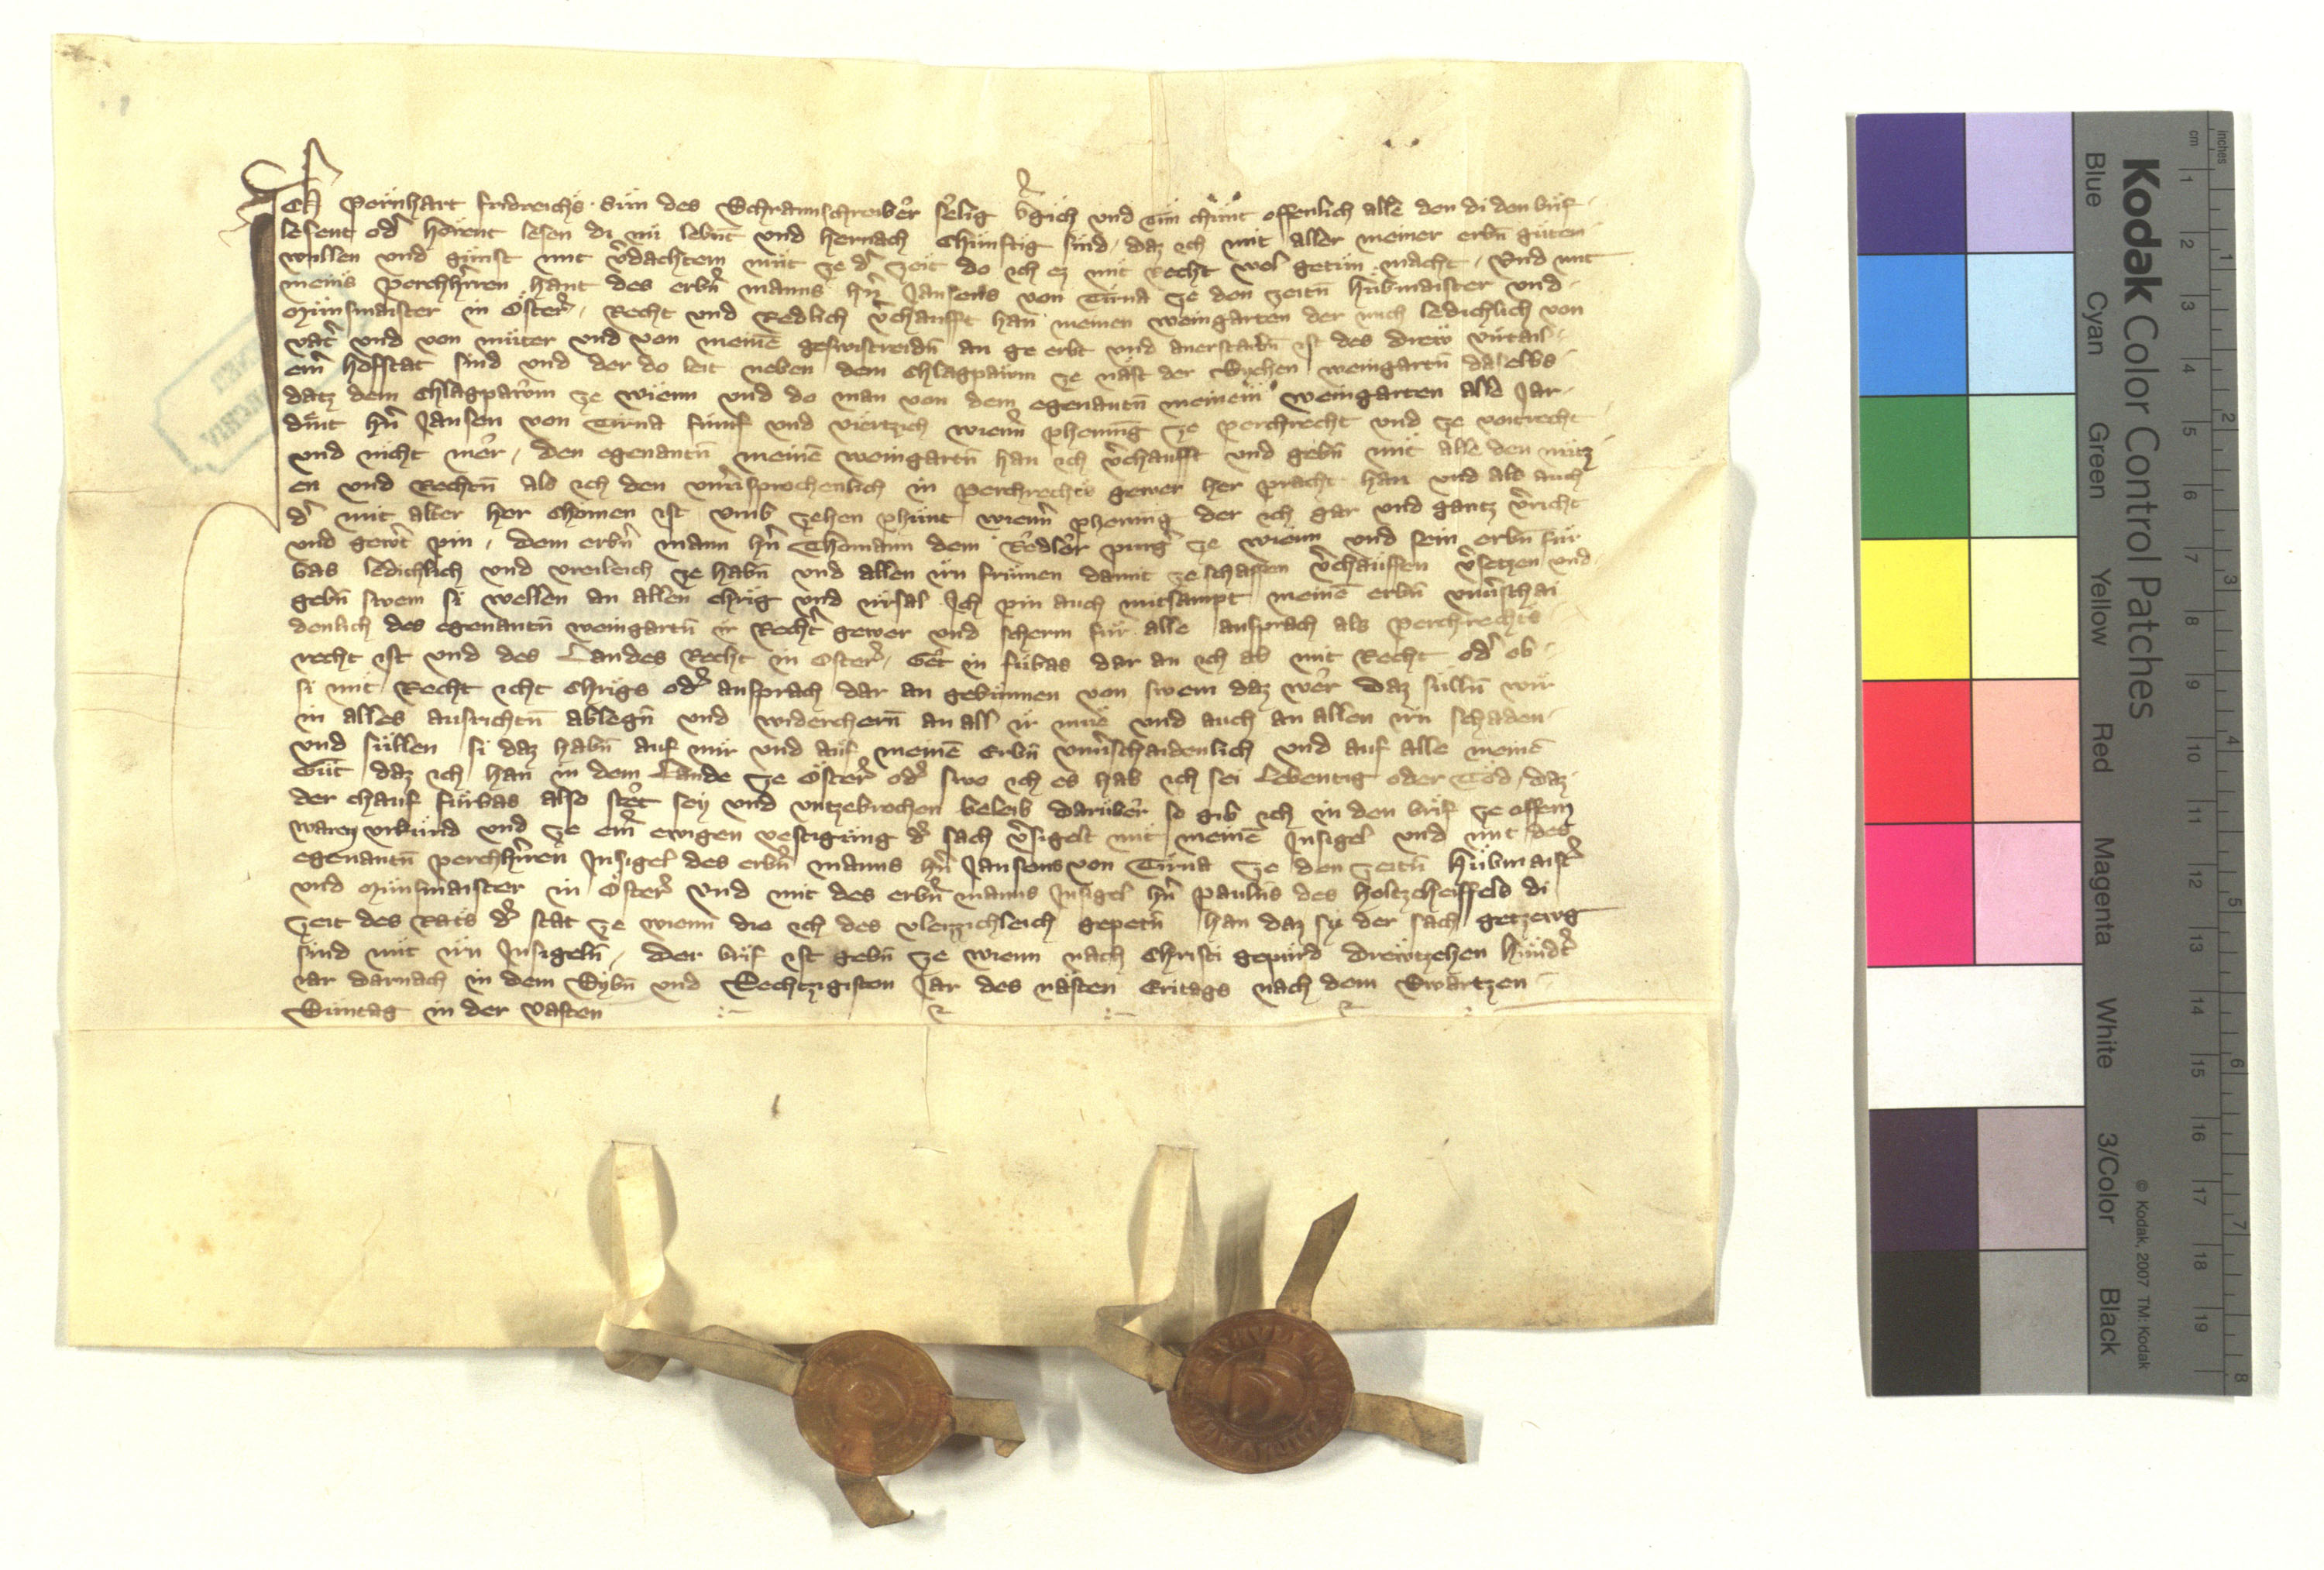 Ich Pernhart fridreichs sun des Schrannschreiber selig v̾gich und tun chunt offenlich alle den di den brif
lesent od̾ horent lesen di nu lebnt und hernach chunftig sind, daz ich mit aller meiner erbn̄ guten
willen und gunst mit v̾dachtem mut ze d̾ zeit do ich ez mit Recht wol getun macht, Und mit
meins perchh̾ren hant des erbn̾ manns hn̾ Jansens von Tirna ze den zeitn̄ hubmaister und
Munsmaister in Öster̾, Recht und Redlich v̾chaufft han meinen weingarten der mich ledichlich von
vat̾ und von muter und von meinē geswistreidn̄ an ge erbt und anerstarbn̄ ist des drew virtail
ein̾ hofstat sind und der do leit neben dem chlagpaum ze näst der Sychen weingartn̄ daselbs
datz dem chlagpawm ze wienn und do man von dem egenantn̄ meinem weingarten alld Jar
dint hn̾ Jansen von Tirna fumf und viertzich wienn̾ phening ze perchrecht und ze voitrecht
und nicht mer, den egenantn̄ meinē weingartn̄ han ich v̾chaufft und gebn̄ mit alle den nutz
en und Rechtn̄ als ich den unv̾sprochenlich in perchrechts gewer her pracht han und als auch
d̾ mit alter her chomen ist umb zehen phunt wienn̾ phening der ich gar und gantz v̾richt
und gewert pin, dem erbn̾ mann hn̾ Thomann dem Redler purg̾ ze wienn und sein erbn̄ fur
bas ledichlich und vreileich ze habn̄ und allen irn frumen damit ze schaffen v̾chauffen v̾setzen und
gebn̄ swem si wellen an allen chrig und irsal Ich pin auch mitsampt meinē erbn̄ unv̾schai
denlich des egenantn̄ weingartn̄ ir Recht̾ gewer und scherm fur alle ansprach als perchrechts
recht ist und des Landes Recht in Oster̾, Get in fubas dar an icht ab mit Recht od̾ ob
si mit Recht icht chrigs od̾ ansprach dar an gebunnen von swem daz wer daz sulln̄ wir
in alles ausrichtn̄ ablegn̄ und widerchern̄ an all ir mue und auch an allen irn schaden
und sullen si daz habn̄ auf mir und auf meinē Erbn̄ unv̾schaidenlich und auf alle meinē
Gut daz ich han in dem Lande ze Öster̾ od̾ swo ich es hab ich sei Lebentig oder Tod, daz
der chauf furbas also stet sey und untzebrochen beleib daruber so gib ich in den brif ze offem
warn urkund und ze ein̾ ewigen vestigung d̾ sach v̾sigelt mit meinē Insigel und mit des
egenantn̄ perchh̾ren Insigel des erbn̾ manns hn̾ Jansens von Tirna ze den zeitn̄ Hubmaist̾
und Munsmaister in Öster̾ und mit des erbn̾ manns Insigel hn̾ pauln̄s des holtzcheuffels di
zeit des Rats d̾ stat ze wienn die ich des vleizzichleich gepetn̄ han daz sy der sach getzewg
sind mit irn Insigeln̄, Der brif ist gebn̄ ze wienn nach Christi gepurd drewtzehen hundt̾
iar darnach in dem Sybn̄ und Sechtzigisten Jar des nasten Eritags nach dem Swartzen
Suntag in der vasten
Kodak Color Control Patches
Blue Cyan Green Yellow Red Magenta White 3/Color Black
© Kodak, 2007 TM: Kodak
inches
cm
1 2 3 4 5 6 7 8 9 10 11 12 13 14 15 16 17 18 19
1 2 3 4 5 6 7 8